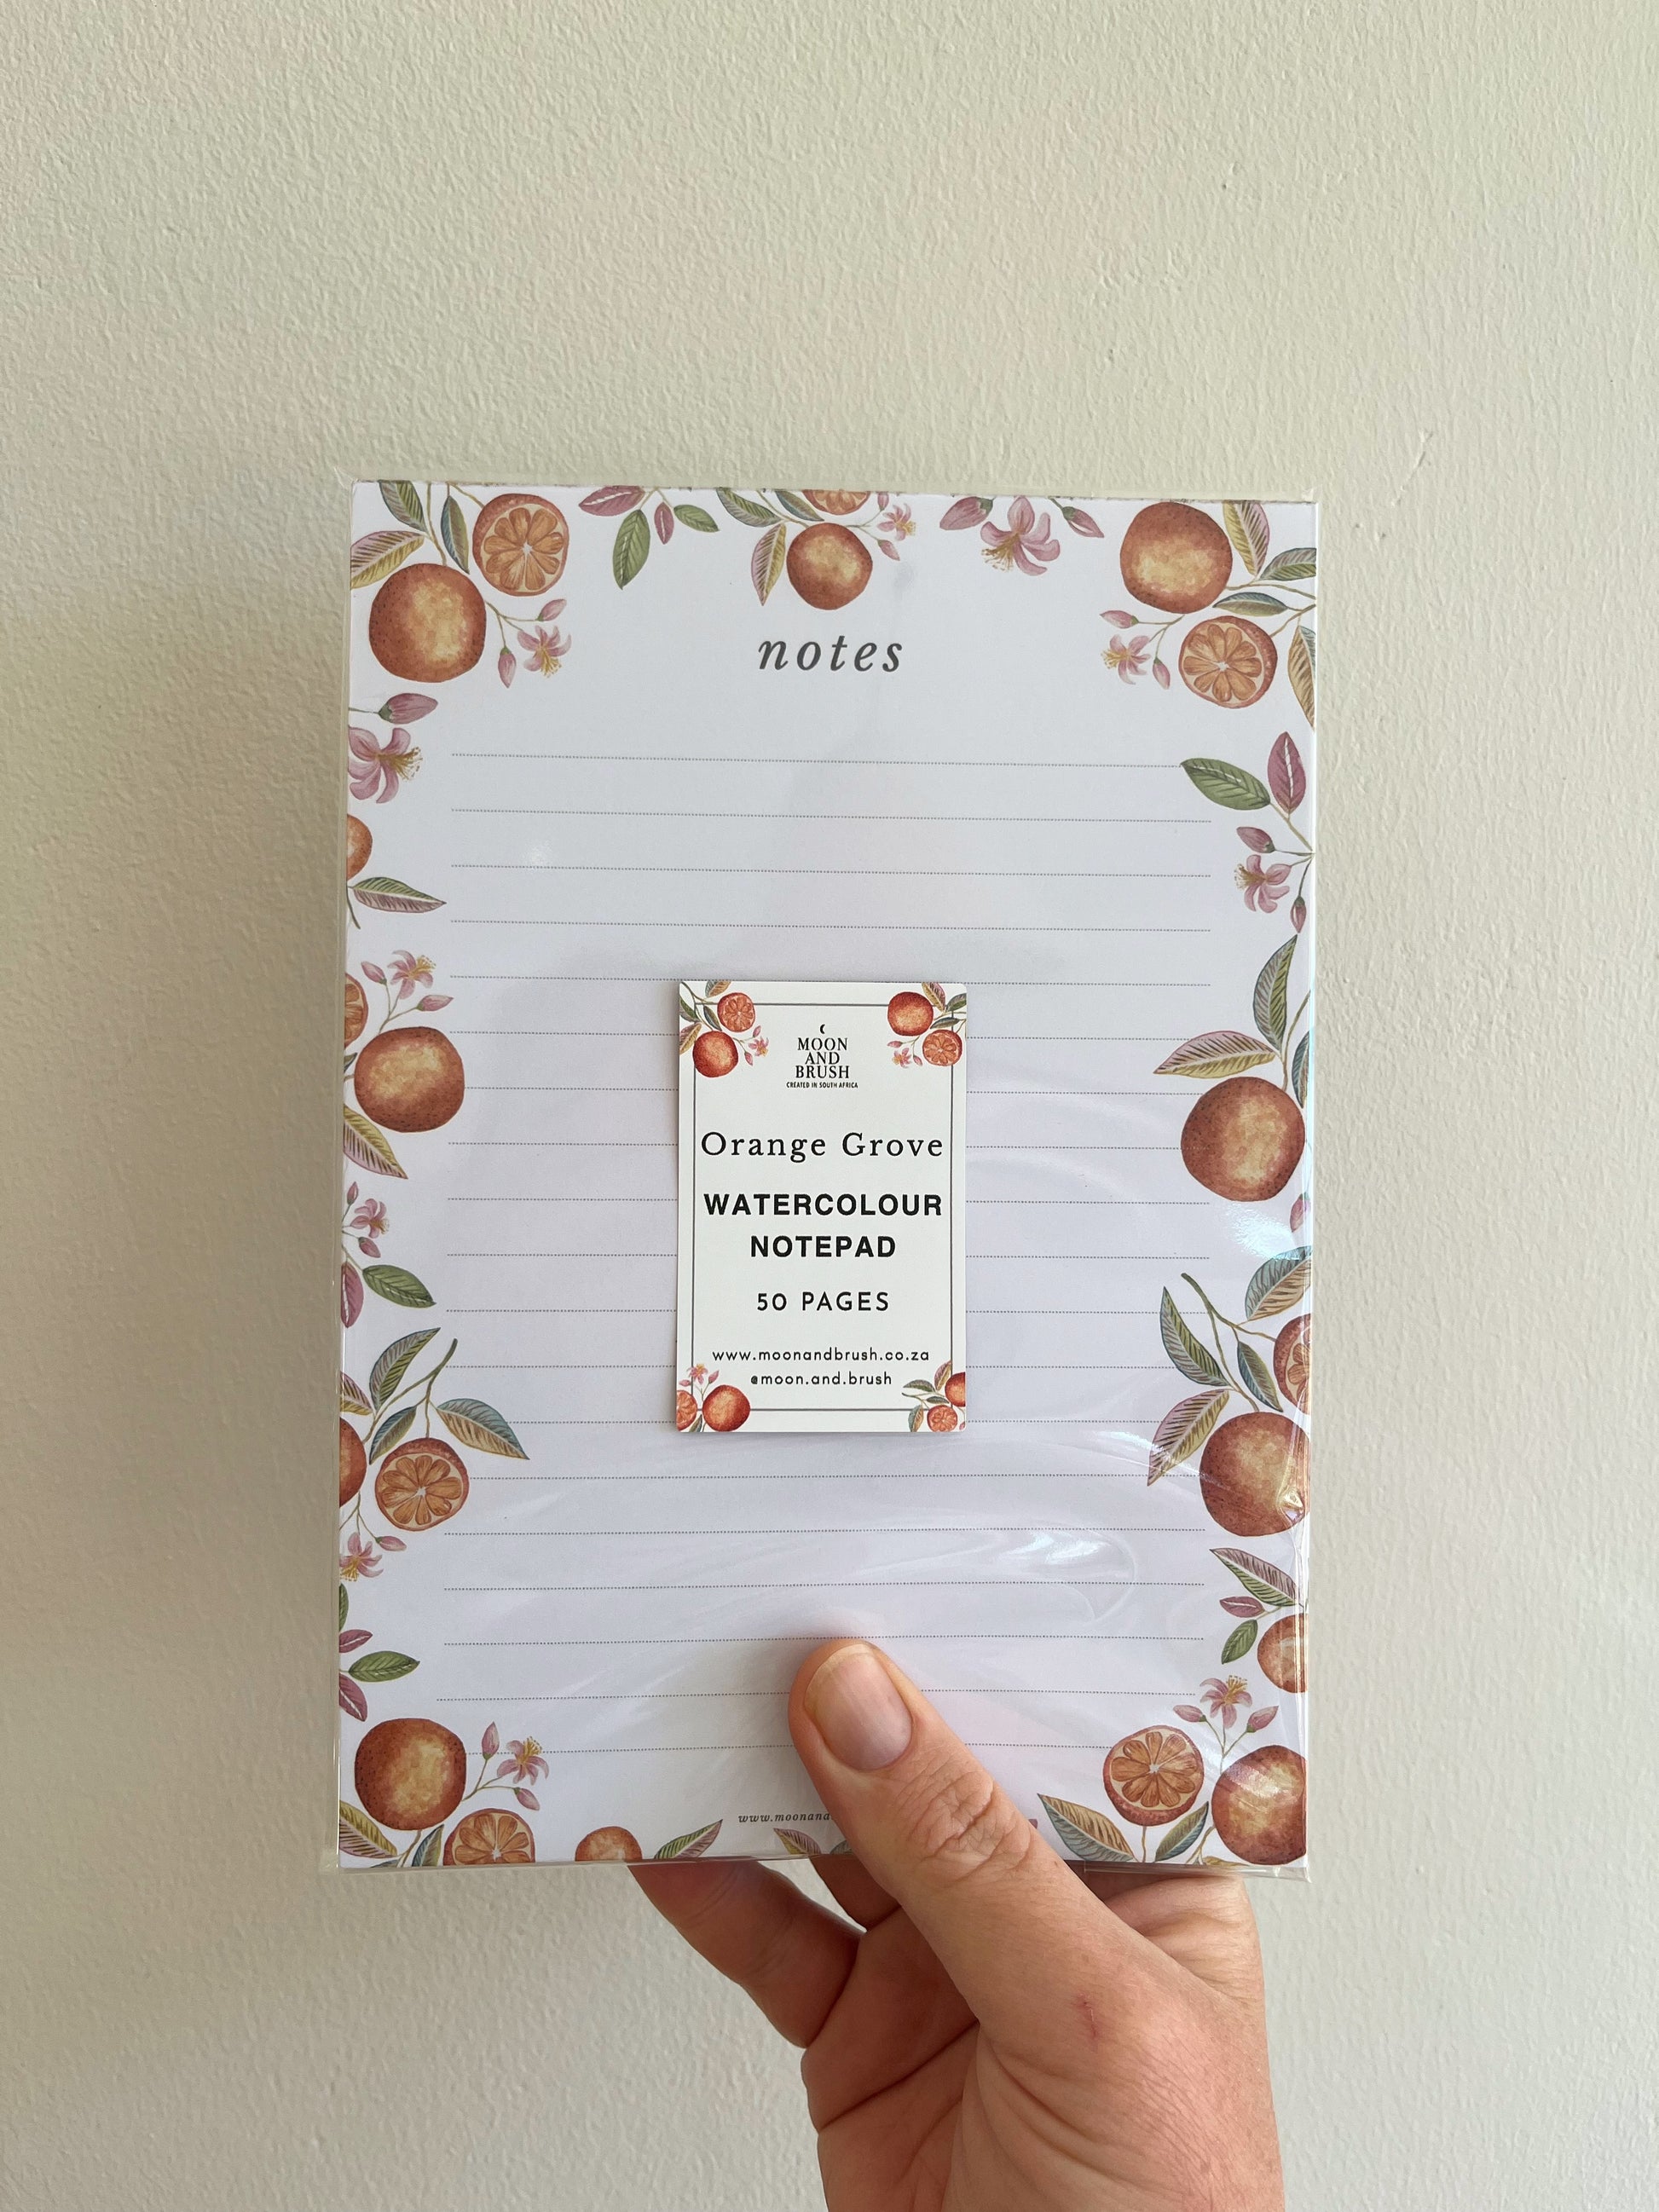 notes
MOON
AND
BRUSH
CREATED IN SOUTH AFRICA
Orange Grove
WATERCOLOUR
NOTEPAD
50 PAGES
www.moonandbrush.co.za
@moon.and.brush